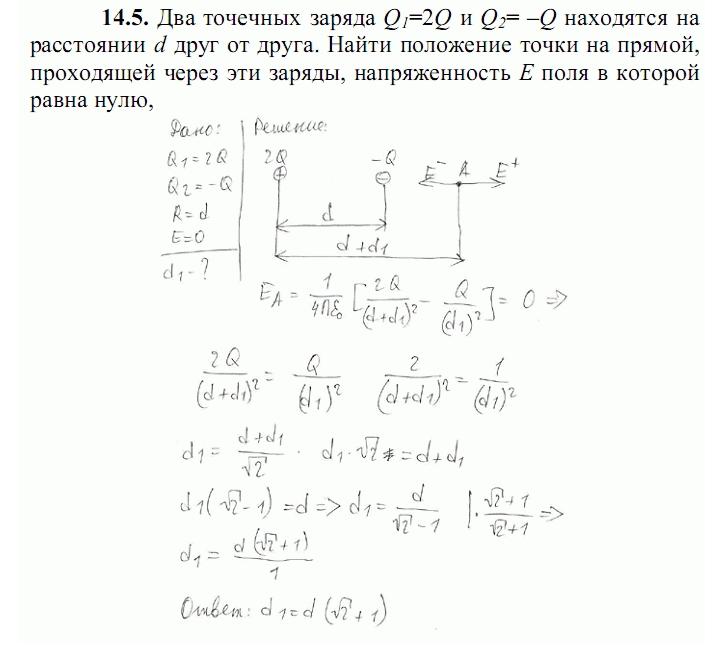 14.5. Два точечных заряда Q₁=2Q и Q₂= –Q находятся на
расстоянии d друг от друга. Найти положение точки на прямой,
проходящей через эти заряды, напряженность E поля в которой
равна нулю,
Дано:
Q₁=2Q
Q₂=-Q
R=d
E=0
d₁-?
Решение:
2Q -Q E⁻ A E⁺
⊕ ⊖
d
d+d₁
E_A = 1/(4πε₀) [2Q/(d+d₁)² - Q/(d₁)²] = 0 =>
2Q/(d+d₁)² = Q/(d₁)² 2/(d+d₁)² = 1/(d₁)²
d₁ = (d+d₁)/√2 · d₁·√2 = d+d₁
d₁(√2-1) = d => d₁ = d/(√2-1) |· (√2+1)/(√2+1) =>
d₁ = d(√2+1)/1
Ответ: d₁=d(√2+1)